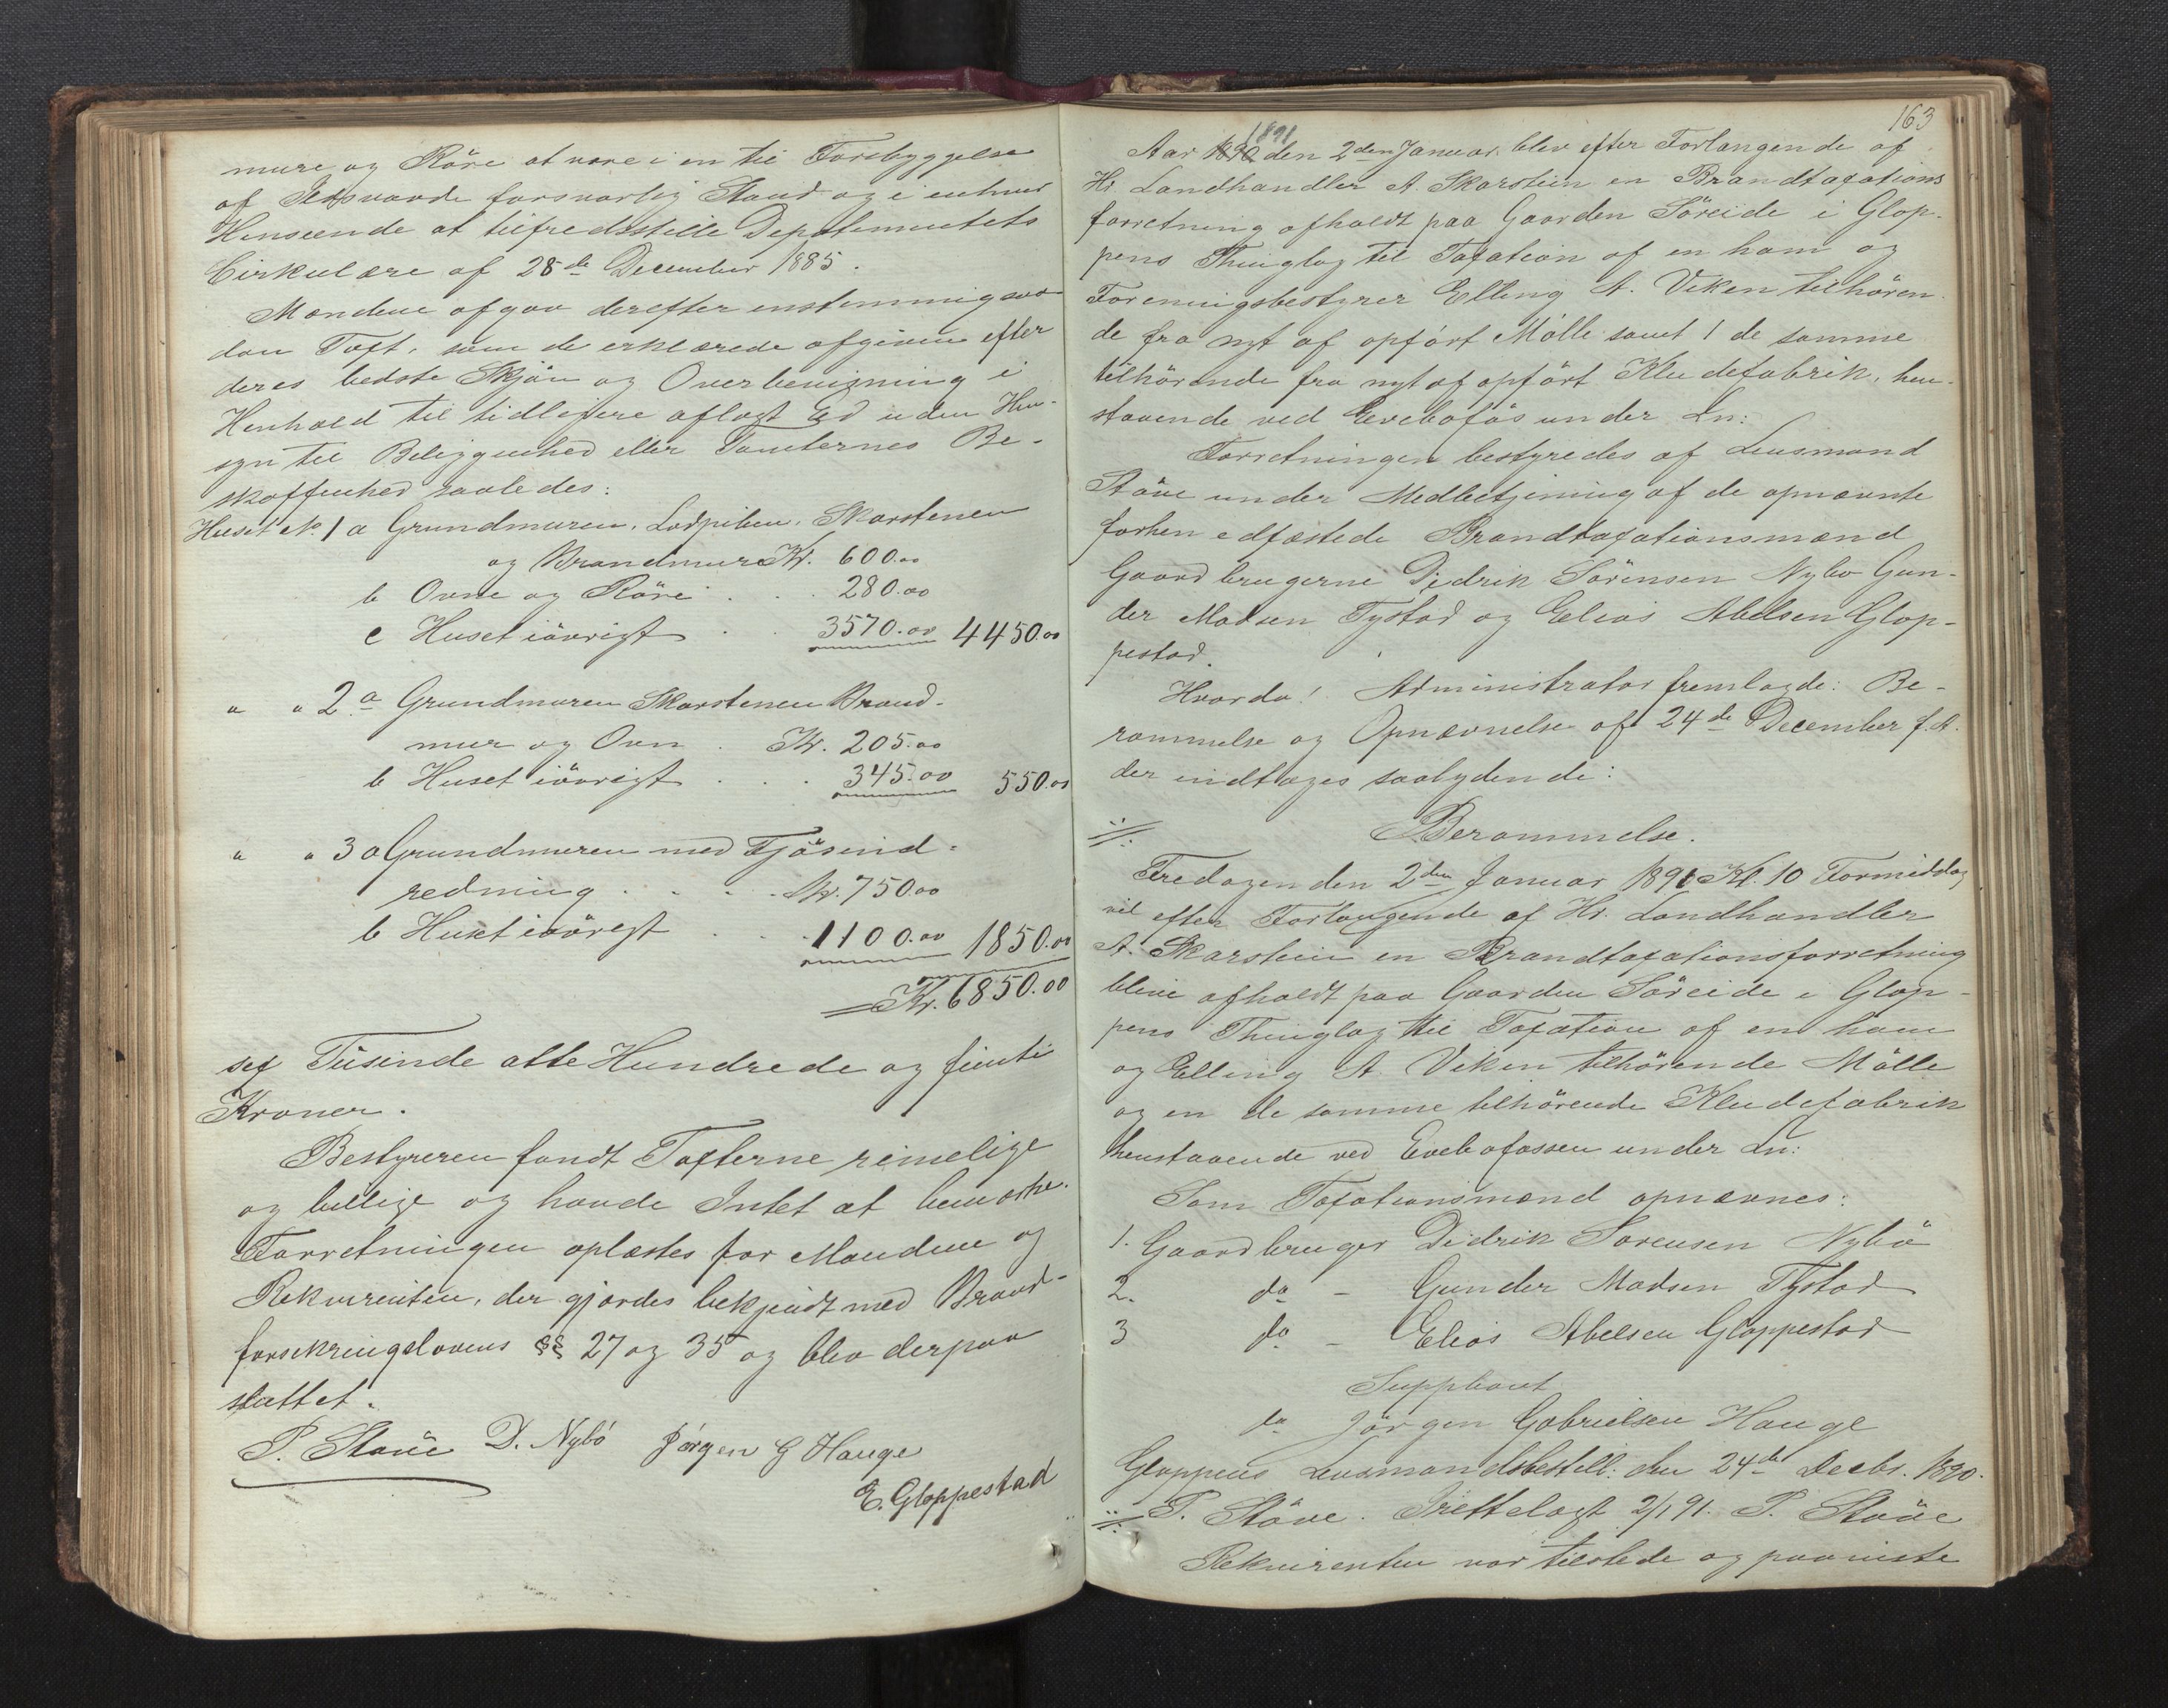 mure og Röre at være i en til Forebyggelse
af Ildsvaade forsvarlig Stand og i enhver
Henseende at tilfredsstille Departementets
Cirkulære af 28de December 1885.
Mændene afgav derefter enstemmig saa-
dan Taxt, som de erklærede afgiven efter
deres bedste Skjön og Overbevisning i
Henhold til tidligere aflagt Ed uden Hen-
syn til Beliggenhed eller Tomternes Be-
skaffenhed saaledes:
Huset No. 1 a Grundmuren, Lodpiben, Skorstenen
og Brandmure Kr. 600.00
b Ovne og Röre . . 280.00
c Huset iövrigt . . 3570.00 4450.00
" " 2 a Grundmuren Skorstenen Brand-
mur og Ovn . Kr. 205.00
b Huset iövrigt . . 345.00 550.00
" " 3 a Grundmuren med Fjösind-
redning . . . Kr. 750.00
b Huset iövrigt . . 1100.00 1850.00
Kr. 6850.00
sex Tusinde otte Hundrede og femti
Kroner.
Bestyreren fandt Taxterne rimelige
og billige og havde Intet at bemærke.
Forretningen oplæstes for Mændene og
Rekvirenten, der gjordes bekjendt med Brand-
forsikringslovens §§ 27 og 35 og blev derpaa
sluttet.
P. Støve D. Nybö Jørgen G Hauge
E. Gloppestad
163
Aar 1890 1891 den 2den Januar blev efter Forlangende af
Hr. Landhandler A. Skarstein en Brandtaxations
forretning afholdt paa Gaarden Söreide i Glop-
pens Thinglag til Taxation af en ham og
Foreningsbestyrer Elling A. Viken tilhören-
de fra nyt af opfört Mölle samt 1 de samme
tilhörende fra nyt af opfört Kludefabrik, hen-
staaende ved Evebofos under Ln:
Forretningen bestyredes af Lensmand
Støve under Medbetjening af de opnævnte
forhen edfæstede Brandtaxationsmænd
Gaardbrugerne Didrik Sörensen Nybø Gun-
der Madsen Tystad og Elias Abelsen Glop-
pestad.
Hvorda! Administrator fremlagde: Be-
rammelse og Opnævnelse af 24de December f. A.
der indtages saalydende:
Berammelse.
Fredagen den 2den Januar 1891 Kl. 10 Formiddag
vil efter Forlangende af Hr. Landhandler
A. Skarstein en Brandtaxationsforretning
blive afholdt paa Gaarden Söreide i Glop-
pens Thinglag til Taxation af en ham
og Elling A. Viken tilhörende Mölle
og en de samme tilhörende Kludefabrik
henstaaende ved Evebofossen under Ln:
Som Taxationsmænd opnævnes:
1. Gaardbruger Didrik Sorensen Nybö
2. do - Gunder Madsen Tystad
3 do - Elias Abelsen Gloppestad
Suppleant
do Jörgen Gabrielsen Hauge
Gloppens Lensmandsbestill: den 24de Decbr. 1890.
P. Støve. Irettelagt 2/1 91. P. Støve
Rekvirenten var tilstede og paaviste